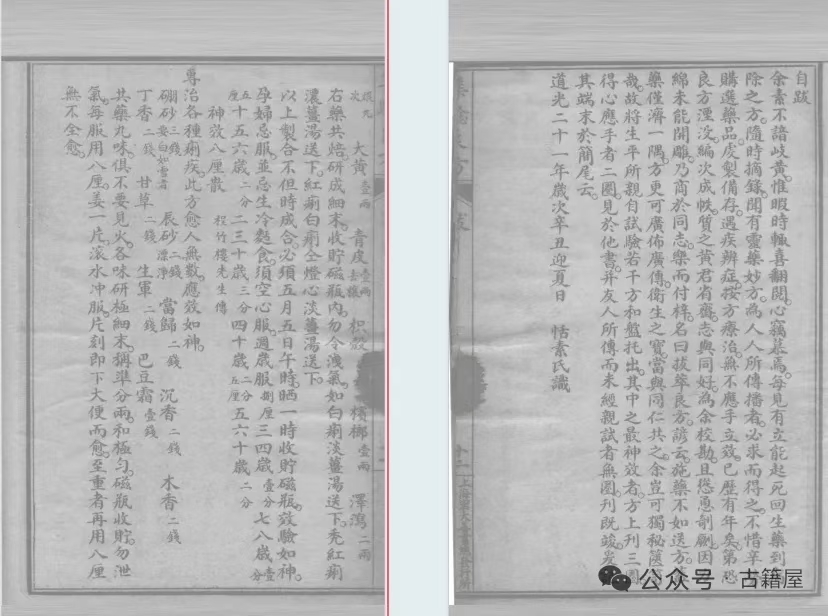 自跋
余素不諳岐黃惟暇時輒喜翻閱心竊慕焉每見有立能起死回生藥到
除之方隨時摘錄聞有靈藥妙方為人人所傳播者必求而得之不惜辛
購選藥品虔製備存遇疾辨症按方療治無不應手立效已歷有年矣第恐
良方湮没編次成帙質之黃君省齋志與同好為余校勘且慫恿剞劂因
綿未能開雕乃商於同志樂而付梓名曰拔萃良方諺云施藥不如送方
藥僅濟一隅方更可廣佈廣傳衛生之寶當與同仁共之余豈可獨秘篋
哉故將生平所親自試驗若干方和盤托出其中之最神效者方上刊三圈
得心應手者二圈見於他書并友人所傳而未經親試者無圈刊既竣爰
其端末於簡尾云
道光二十一年歲次辛丑迎夏日 恬素氏識
十二
大黃壹兩 青皮壹兩去穰 枳殼 檳榔壹兩 澤瀉二兩
右藥共焙研成細末收貯磁瓶內勿令洩氣如白痢淡薑湯送下禿紅痢
濃薑湯送下紅痢白痢仝燈心淡薑湯送下
以上製合不但時成合必須五月五日午時晒一時收貯磁瓶效驗如神
孕婦忌服並忌生冷麪食須空心服週歲服捌厘三四歲壹分七八歲壹
五厘十五六歲二分二三十歲三分四十歲二分五厘五六十歲二分
神效八厘散 程竹樓先生傳
專治各種痢疾此方愈人無數應效如神
硼砂三錢要白如雪者 辰砂二錢漂淨 當歸二錢 沉香二錢 木香二錢
丁香二錢 甘草二錢 生軍二錢 巴豆霜壹錢
共藥九味俱不要見火各味研極細末稱準分兩和極勻磁瓶收貯勿泄
氣每服用八厘姜一片滾水冲服片刻即下大便而愈至重者再用八厘
無不全愈
公众号 · 古籍屋